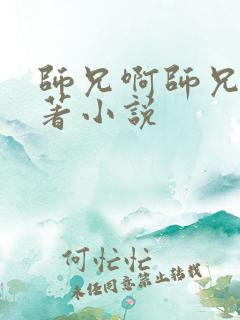 師兄啊師兄
著小説
何忙忙
未经同意禁止转载